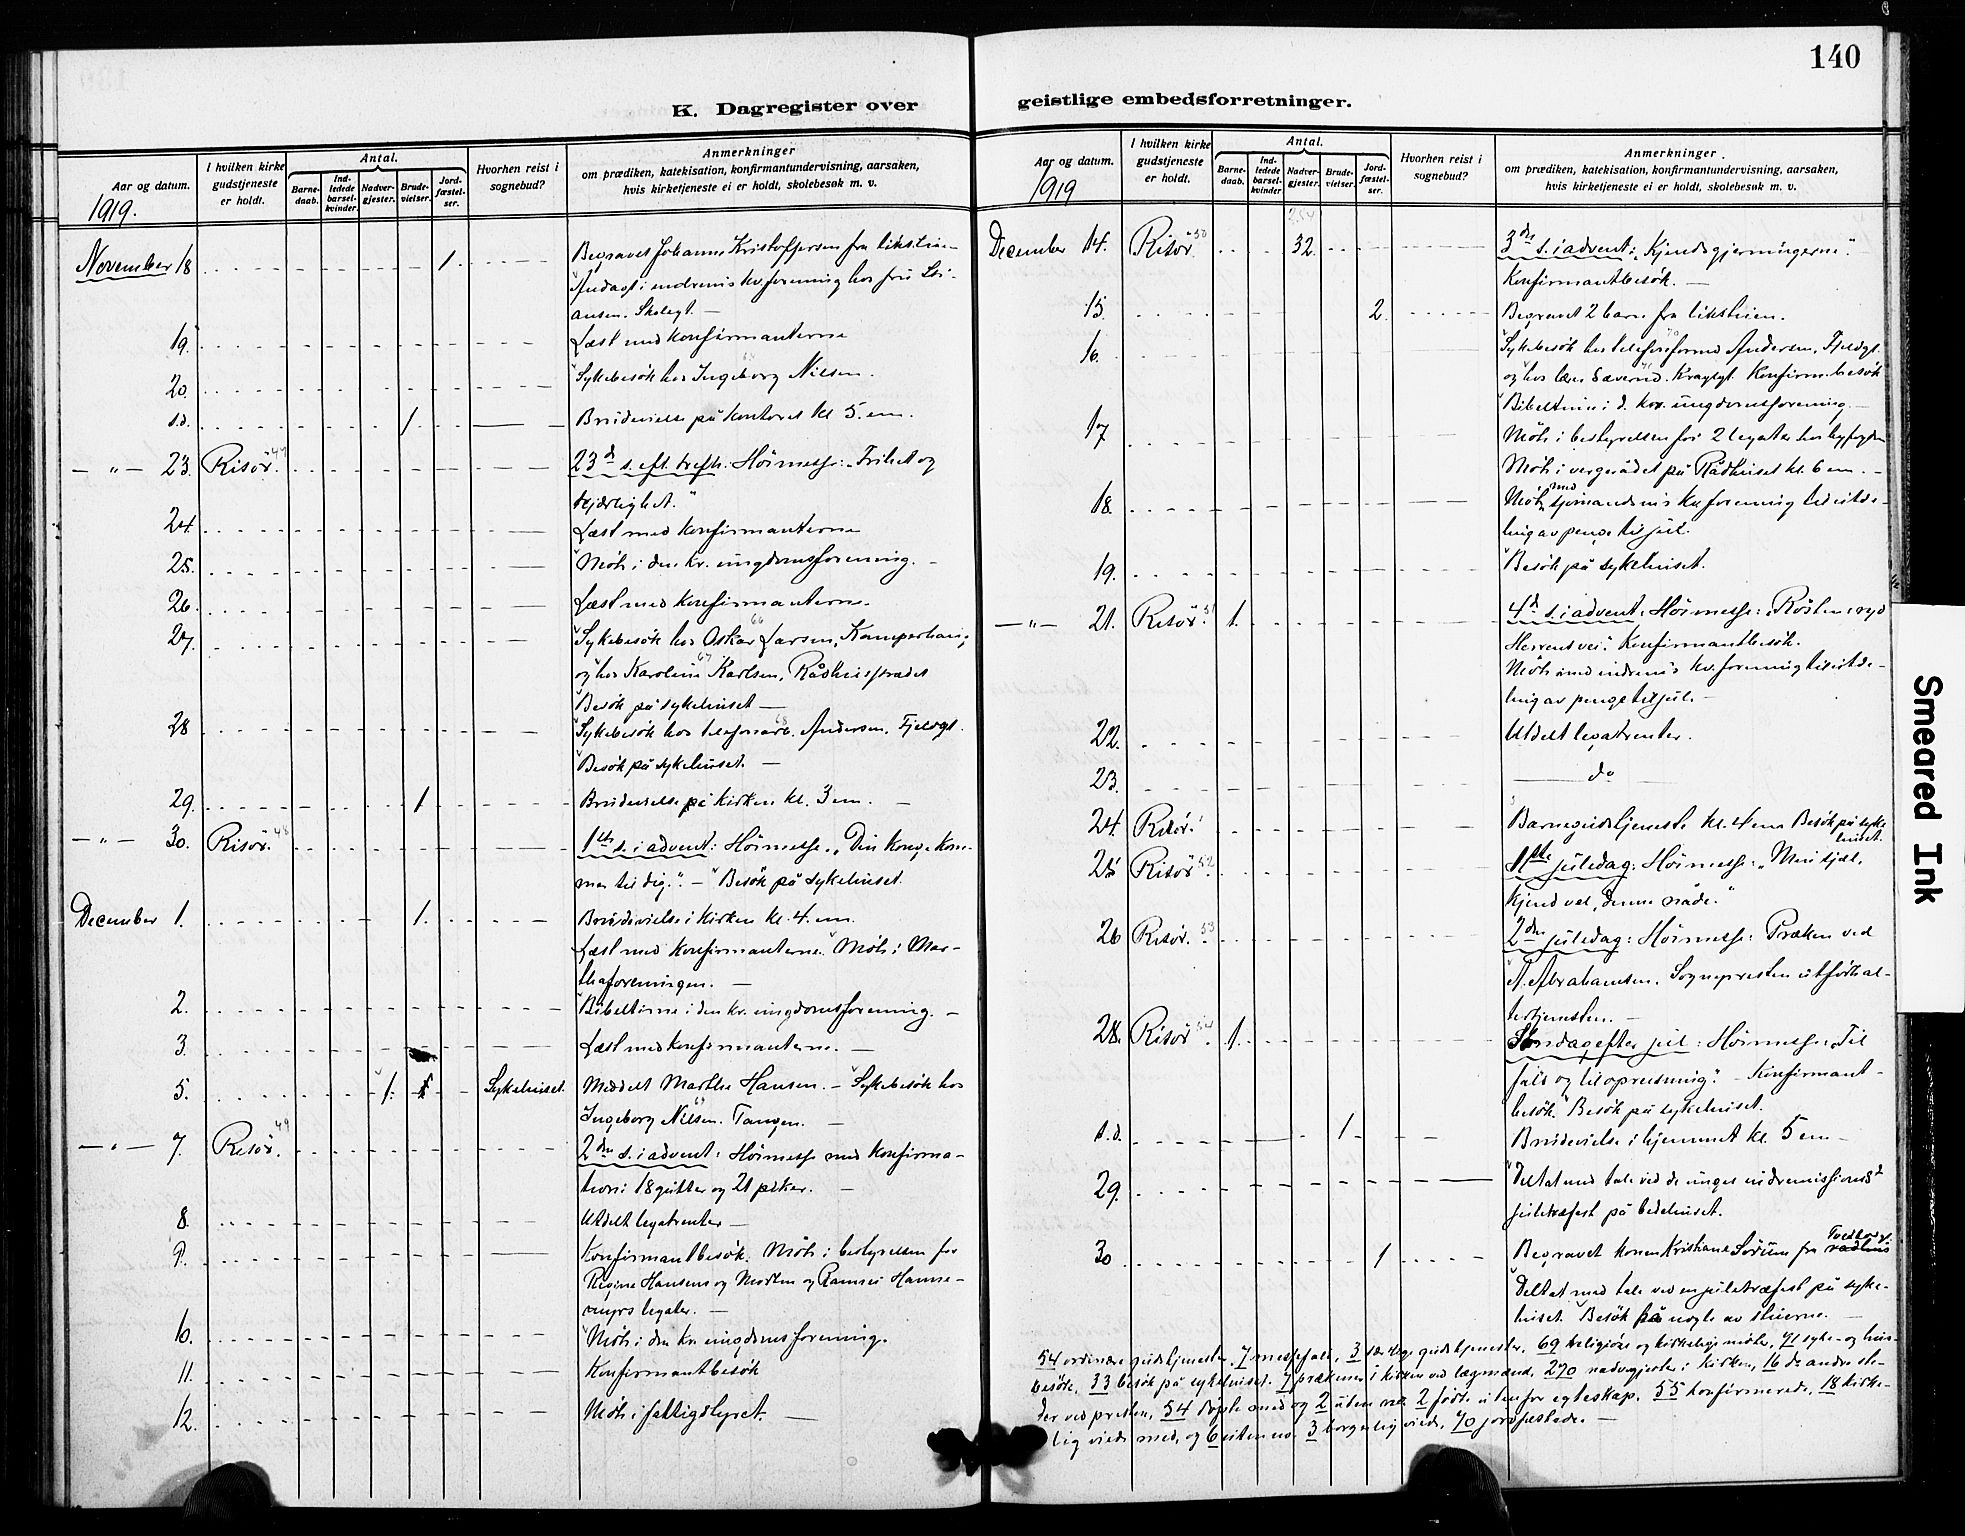 140
K. Dagregister over
geistlige embedsforretninger.
Aar og datum.
1919.
I hvilken kirke gudstjeneste er holdt.
Antal.
Barne-daab.
Ind-ledede barsel-kvinder.
Nadver-gjester.
Brude-vielser.
Jord-fæstel-ser.
Hvorhen reist i sognebud?
Anmerkninger
om prædiken, katekisation, konfirmantundervisning, aarsaken,
hvis kirketjeneste ei er holdt, skolebesøk m. v.
November 18 1. Begravet Johanne Kristoffersen fra likstuen
Andagt i indremis. kv. forening hos fru
ansen. Skolegt.
19. Læst med konfirmanterne
20. Sykebesøk hos Ingeborg Nilsen.
s.d. 1 Brudevielse på kontoret kl 5. em.
— " — 23. Risør. 47 23d s. eft. trefh. Høimesse: "Frihet og
kjærlighet."
24. Læst med konfirmanterne
25. Møte i den kr. ungdomsforening.
26. Læst med konfirmanterne.
27. Sykebesøk hos Oskar Larsen, 66 Kamperhaug
og hos Karoline Karlsen, 67 Rådhusstrædet
Besøk på sykehuset —
28 Sykebesøk hos telefonarb. Andersen, 68 Fjeldgt.
Besøk på sykehuset. —
29. 1 Brudevielse på kirken kl. 3 em. —
— " — 30. Risør. 48 1ste s. i advent: Høimesse. "Din konge kom-
mer til dig." — Besøk på sykehuset.
December 1. 1. Brudevielse i kirken kl. 4. em.
Læst med konfirmanterne. Møte i Mar-
thaforeningen. —
2. Bibeltime i den kr. ungdomsforening. —
3. Læst med konfirmanterne. —
5. 1. Sykehuset. Meddelt Marthe Hansen. — Sykebesøk hos
Ingeborg Nilsen. 69 Tangen. —
— " — 7. Risør. 49 2den s. i advent: Høimesse med konfirma-
tion: 18 gutter og 21 piker. —
8. Utdelt legatrenter —
9. Konfirmantbesøk. Møte i bestyrelsen for
Regine Hansens og Morten og Ramus Hanne-
myrs legater. —
10. Møte i den kr. ungdomsforening.
11. Konfirmantbesøk
12. Møte i fattigstyret. —
Aar og datum.
1919
I hvilken kirke gudstjeneste er holdt.
Antal.
Barne-daab.
Ind-ledede barsel-kvinder
Nadver-gjester.
Brude-vielser.
Jord-fæstel-ser.
Hvorhen reist i sognebud?
Anmerkninger.
om prædiken, katekisation, konfirmantundervisning, aarsaken,
hvis kirketjeneste ei er holdt, skolebesøk m. v.
254
December 14. Risør. 50 32. 3die s. i advent: "Kjendsgjerningerne".
Konfirmantbesøk. —
15. 2. Begravet 2 barn fra likstuen.
16. Sykebesøk hos Andersen, 70 Fjeldgt.
og hos lærer Sævered. 71 Kragsgt. Konfirm. besøk
Bibeltime i d. kr. ungdomsforening. —
17 Møte i bestyrelsen for 2 legater hos byfogden
Møte i vergerådet på Rådhuset kl. 6 em. —
18. Møte med sjømandsmis. kv. forening til utde-
ling av penge til jul.
19. Besøk på sykehuset.
— " — 21. Risør. 51 1. 4d s. i advent. Høimesse: "Røsten: ryd
Herrens vei". Konfirmantbesøk.
Møte med indremis kv. forening til utde-
ling av penge til jul. —
22. Utdelt legatrenter.
23. — do —
24. Risør. Barnegudstjeneste kl. 4 em Besøk på syke
huset.
25 Risør. 52 1ste juledag: Høimesse: "Min sjæl,
kjend vel, denne nåde."
26 Risør. 53 2den juledag: Høimesse: Præken ved
A. Abrahamsen. Sognepresten utførte al-
tertjenesten. —
28. Risør. 54 1. Søndag efter jul: Høimesse: "Til
fald og til opreisning". — Konfirmant-
besøk. Besøk på sykehuset.
s.d. 1 Brudevielse i hjemmet kl. 5 em —
29. Deltat med tale ved de unges indremissions
juletræfest på bedehuset.
30 1 Begravet konen Kristiane Sørum fra rådhus
Deltat med tale ved en juletræfest på syke-
huset. Besøk på nogle av stuerne. —
54 ordinære gudstjenester, 7 messefald, 3 særlige gudstjenester, 69 religiøse og kirkelige møter, 71 syke- og hus-
besøk, 33 besøk på sykehuset. 7 prækener i kirken ved lægmænd, 270 nadvergjester i kirken, 16 do andre ste-
der ved presten, 54 døpte med og 2 uten no. 2 født utenfor egteskap. 55 konfirmerede, 18 kirke-
lig viede med, og 6 uten no. 3 borgerlig viede, 70 jordfæstede. —
Smeared Ink